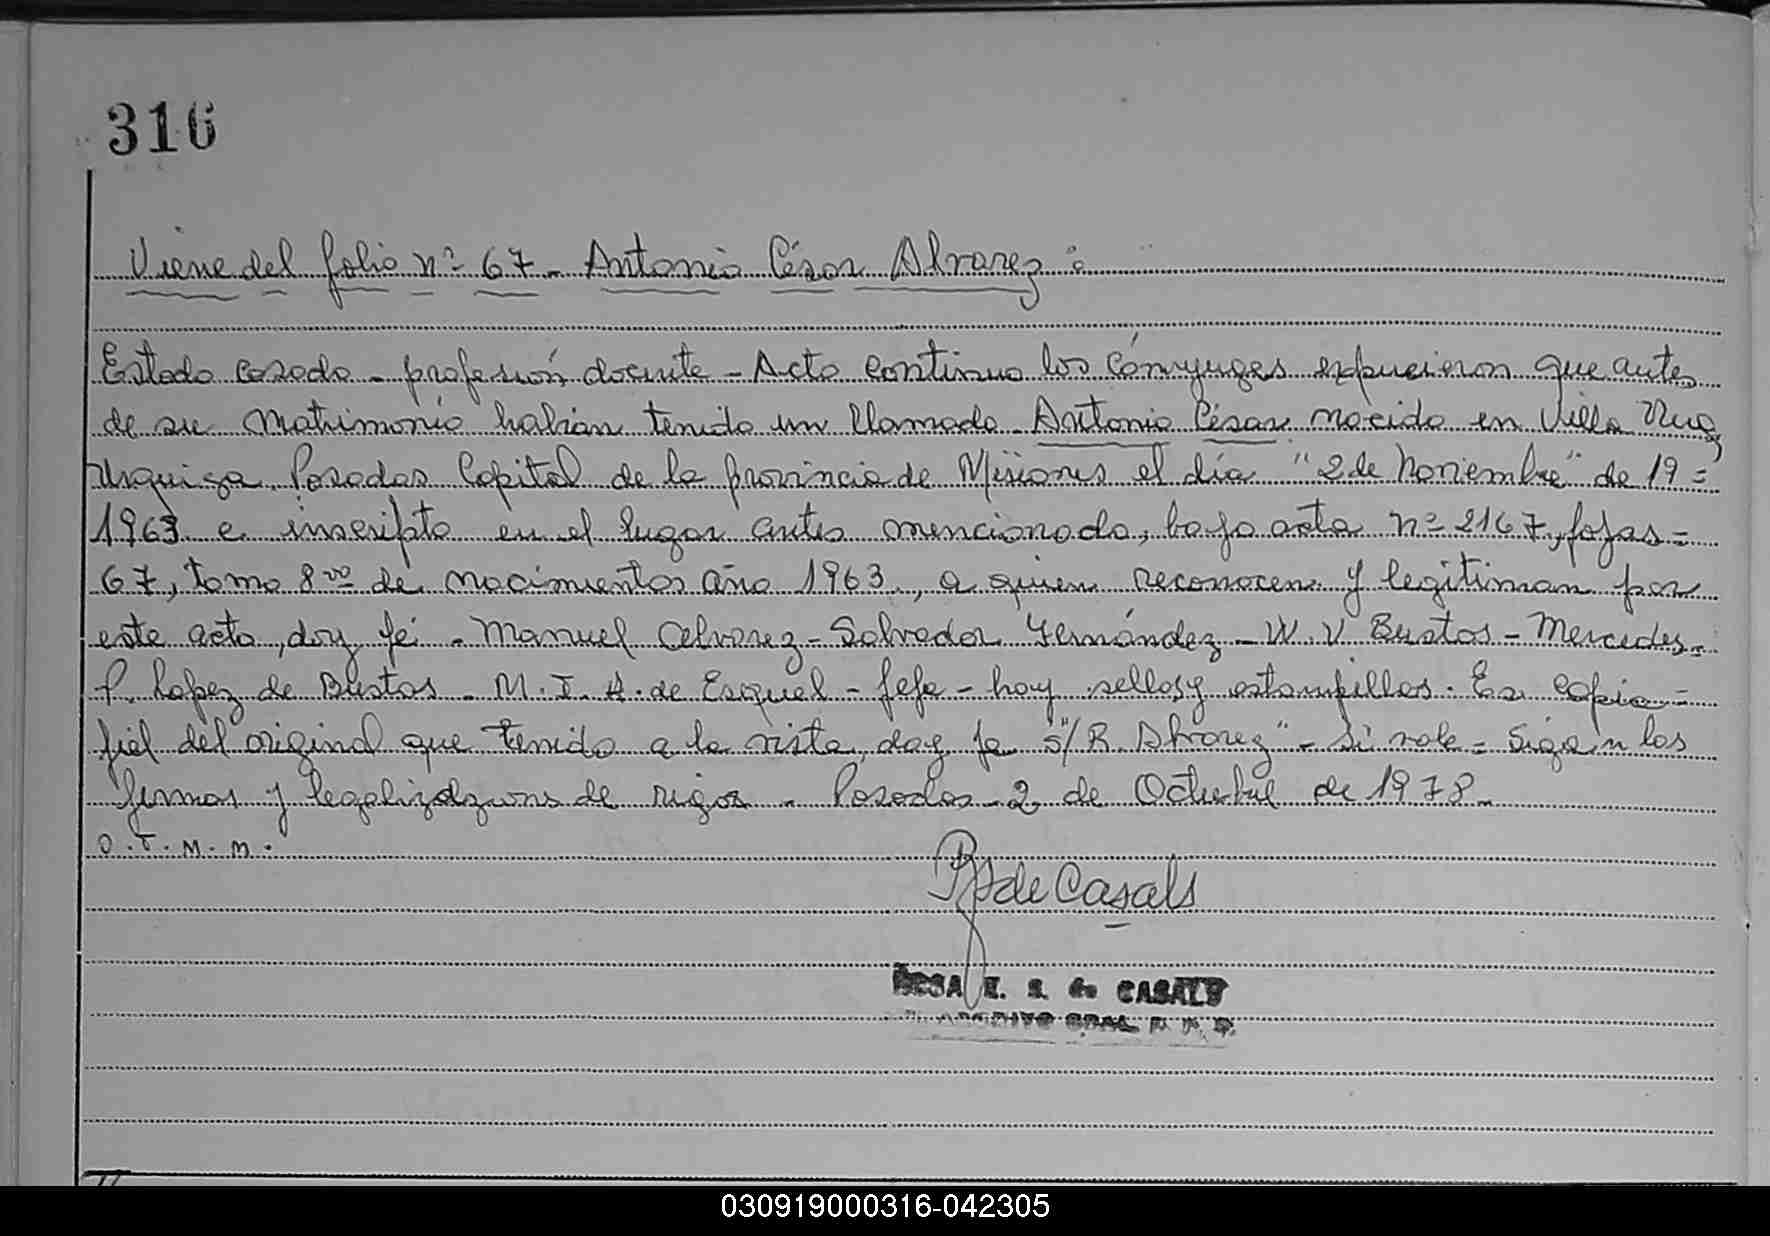 316
Viene del folio nº 67 - Antonio César Alvarez :
Estado casado - profesión docente - Acto continuo los cónyuges expucieron que antes
de su matrimonio habían tenido un llamado Antonio César nacido en Villa
Urquiza Posadas Capital de la provincia de Misiones el día "2 de Noviembre" de 19=
1963 e inscripto en el lugar antes mencionado, bajo acta nº 2167, fojas=
67, tomo 8vo de nacimientos año 1963, a quien reconocen y legitiman por
este acto, doy fé - Manuel Alvarez - Salvador Fernández - W. V Bustos - Mercedes=
P. Lopez de Bustos - M. I. A. de Esquel - Jefe - hay sellos y estampillas. Es copia=
fiel del original que tenido a la vista, doy fe s/ R. Alvarez" - Si vale = Sigan las
firmas y de rigor - Posadas - 2 de Octubre de 1978 -
O. T. M. M.
de Casals
E. S. de CASALS
ARCHIVO GRAL. R. P.
030919000316-042305